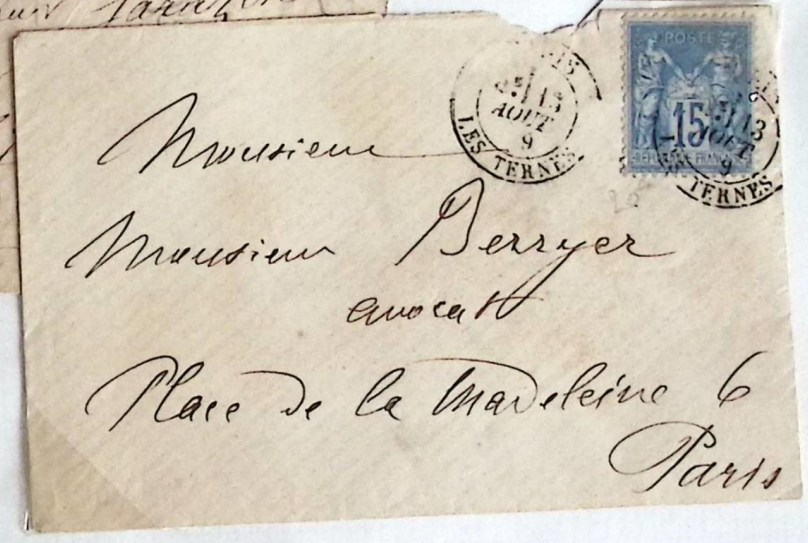 13
AOUT
9
LES TERNES
POSTE
15
REPUBLIQUE FRANCAISE
13
AOUT
9
TERNES
Monsieur
Monsieur Berryer
avocat
Place de la Madeleine 6
Paris